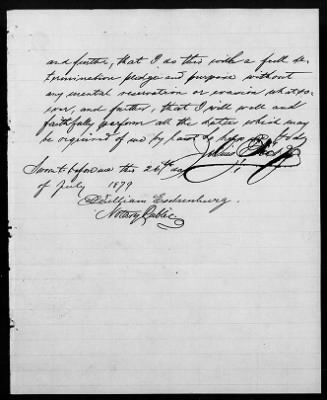 and further, that I do this with a full de-
termination pledge and purpose without
any mental reservation or evasion whatso-
ever, and further, that I will well and
faithfully perform all the duties which may
be required of me by law. So help me God.
Julius
Sworn to before me this 26th day
of July 1879
William Eschenburg.
Notary Public